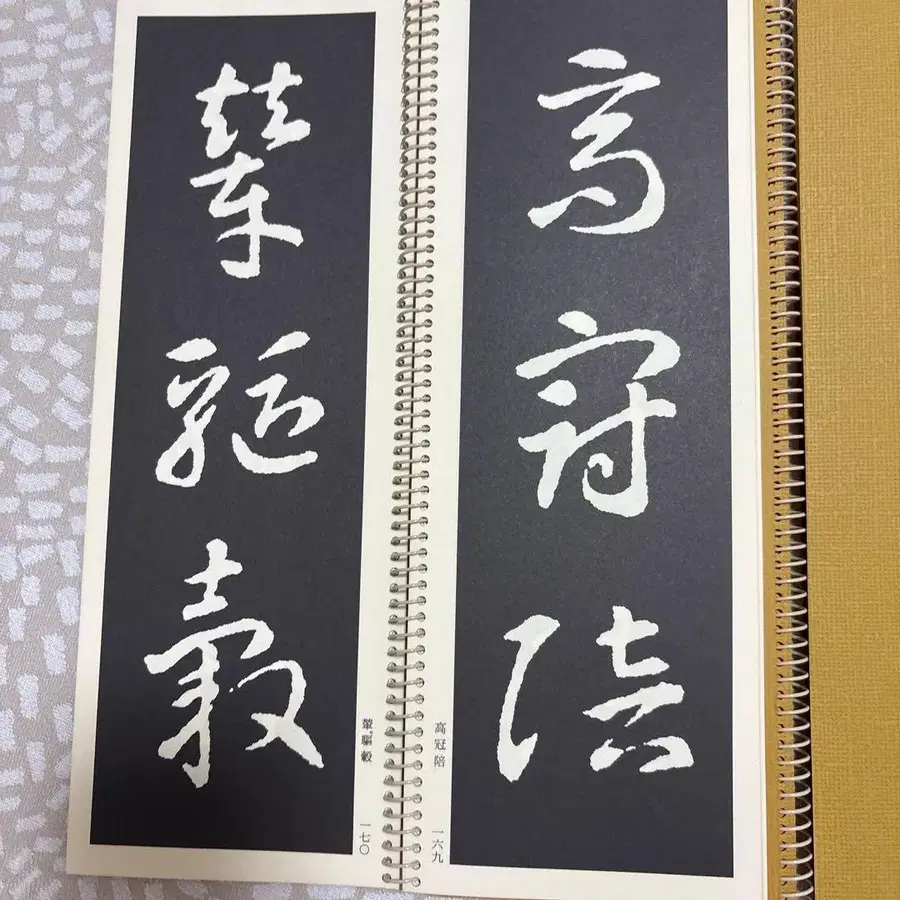 高冠陪
輦驅轂
高冠陪
一六九
輦驅轂
一七〇